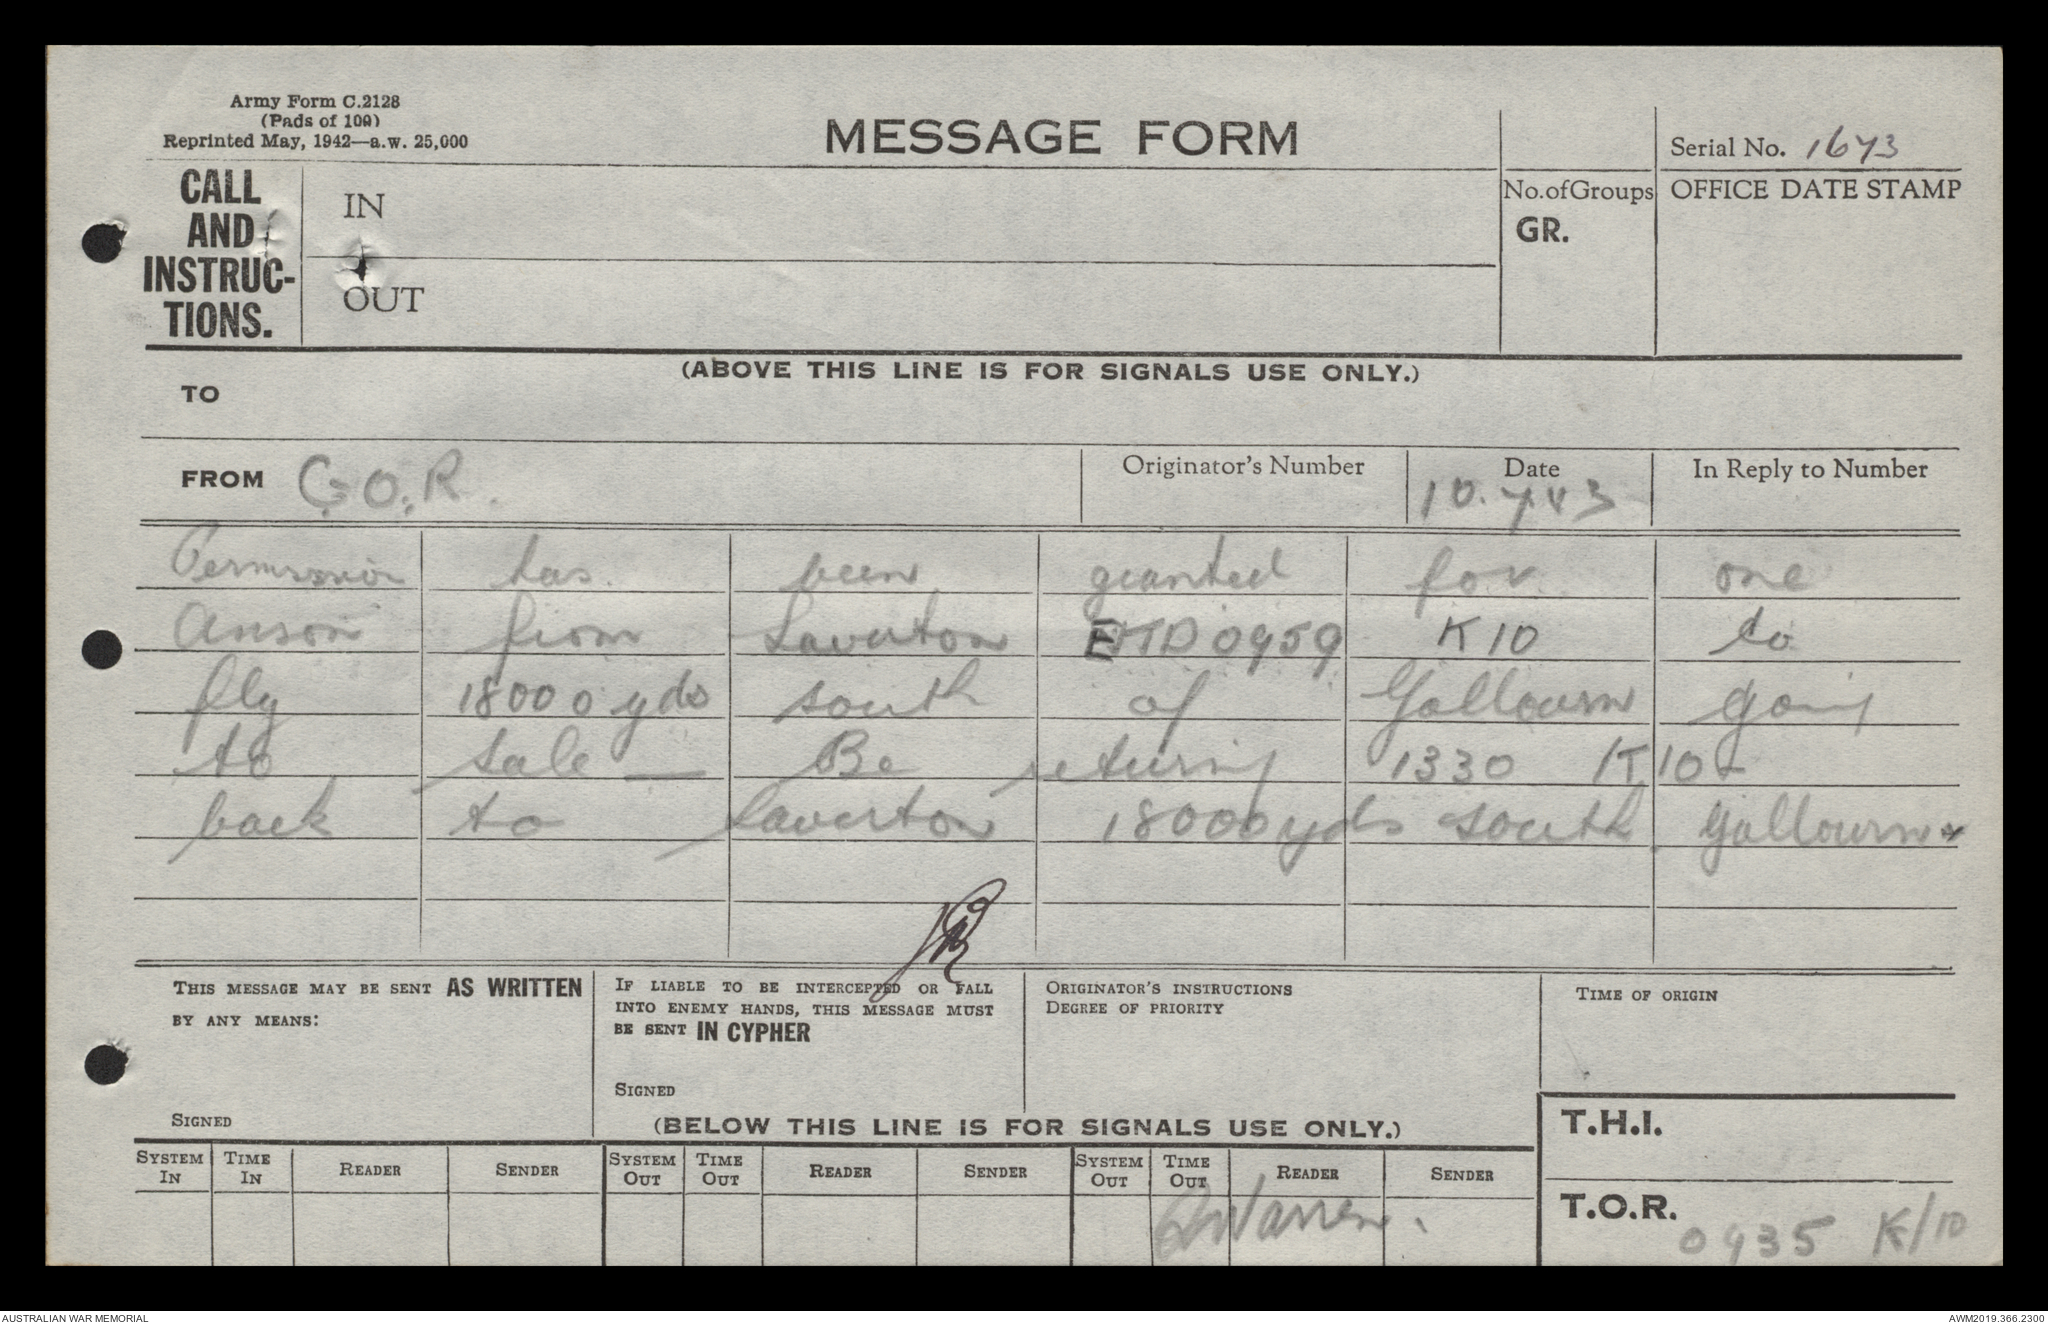 Army Form C.2128
(Pads of 100)
Reprinted May, 1942—a.w. 25,000
MESSAGE FORM
Serial No. 1673
CALL AND INSTRUC-TIONS.
IN
OUT
No. of Groups
GR.
OFFICE DATE STAMP
(ABOVE THIS LINE IS FOR SIGNALS USE ONLY.)
TO
FROM G.O.R.
Originator's Number
Date
10.7.43
In Reply to Number
Permission has been granted for one
Anson from Laverton ETD 0959 K10 to
fly 18000 yds south of Yallourn going
to Sale — Be returning 1330 K10
back to Laverton 18000 yds south Yallourn
THIS MESSAGE MAY BE SENT AS WRITTEN
BY ANY MEANS:
SIGNED
IF LIABLE TO BE INTERCEPTED OR FALL
INTO ENEMY HANDS, THIS MESSAGE MUST
BE SENT IN CYPHER
SIGNED
ORIGINATOR'S INSTRUCTIONS
DEGREE OF PRIORITY
TIME OF ORIGIN
(BELOW THIS LINE IS FOR SIGNALS USE ONLY.)
T.H.I.
SYSTEM IN TIME IN READER SENDER SYSTEM OUT TIME OUT READER SENDER SYSTEM OUT TIME OUT READER SENDER
Warren.
T.O.R. 0935 K/10
AUSTRALIAN WAR MEMORIAL
AWM2019.366.2300